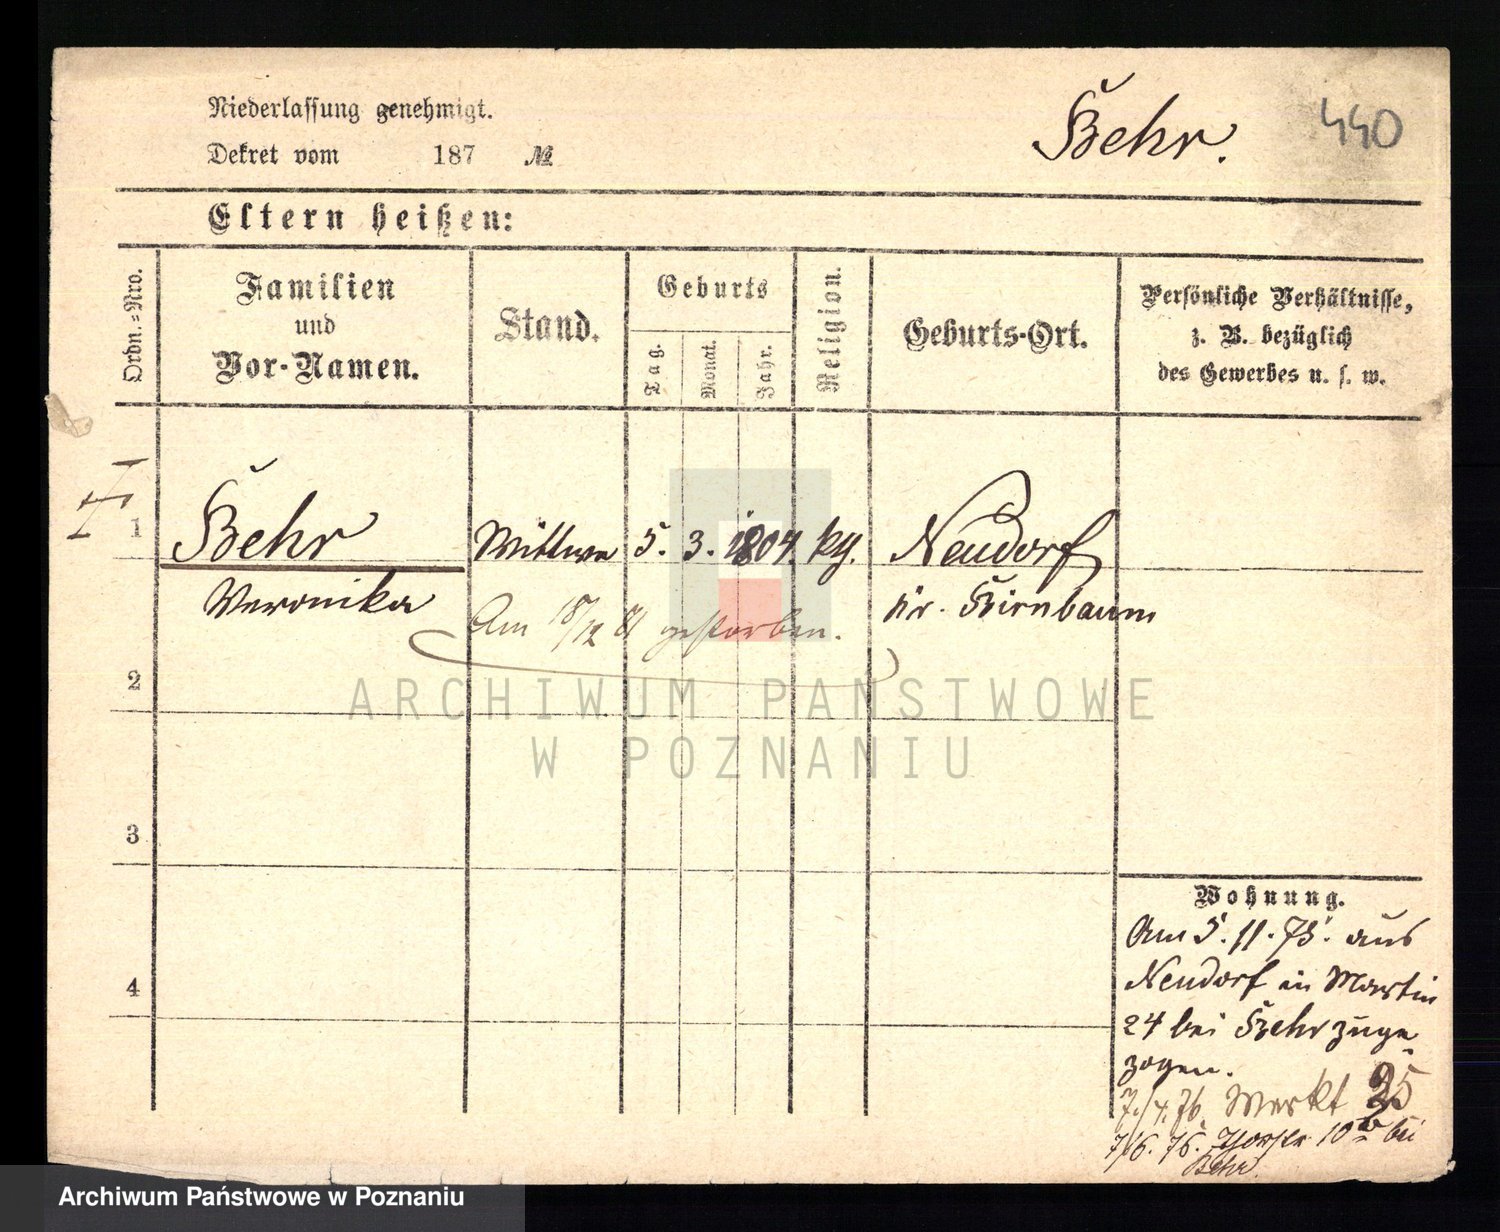 Niederlassung genehmigt.
Dekret vom 187 №
Behr.
440
Eltern heißen:
Ordn.-Nro.
Familien
und
Vor-Namen.
Stand.
Geburts
Tag.
Monat.
Jahr.
Religion.
Geburts-Ort.
Persönliche Verhältnisse,
z. B. bezüglich
des Gewerbes u. s. w.
1 Behr Wittwe 5. 3. 1804. kth. Neudorf
Veronika Kr. Birnbaum
Am 18/12 81 gestorben.
2
3
4
Wohnung.
Am 5. 11. 75. aus
Neudorf in Martin
24 bei Behr zuge-
zogen.
7./4. 76. Markt 25
7/6. 76. 10 b bei
Behr.
ARCHIWUM PAŃSTWOWE
W POZNANIU
Archiwum Państwowe w Poznaniu